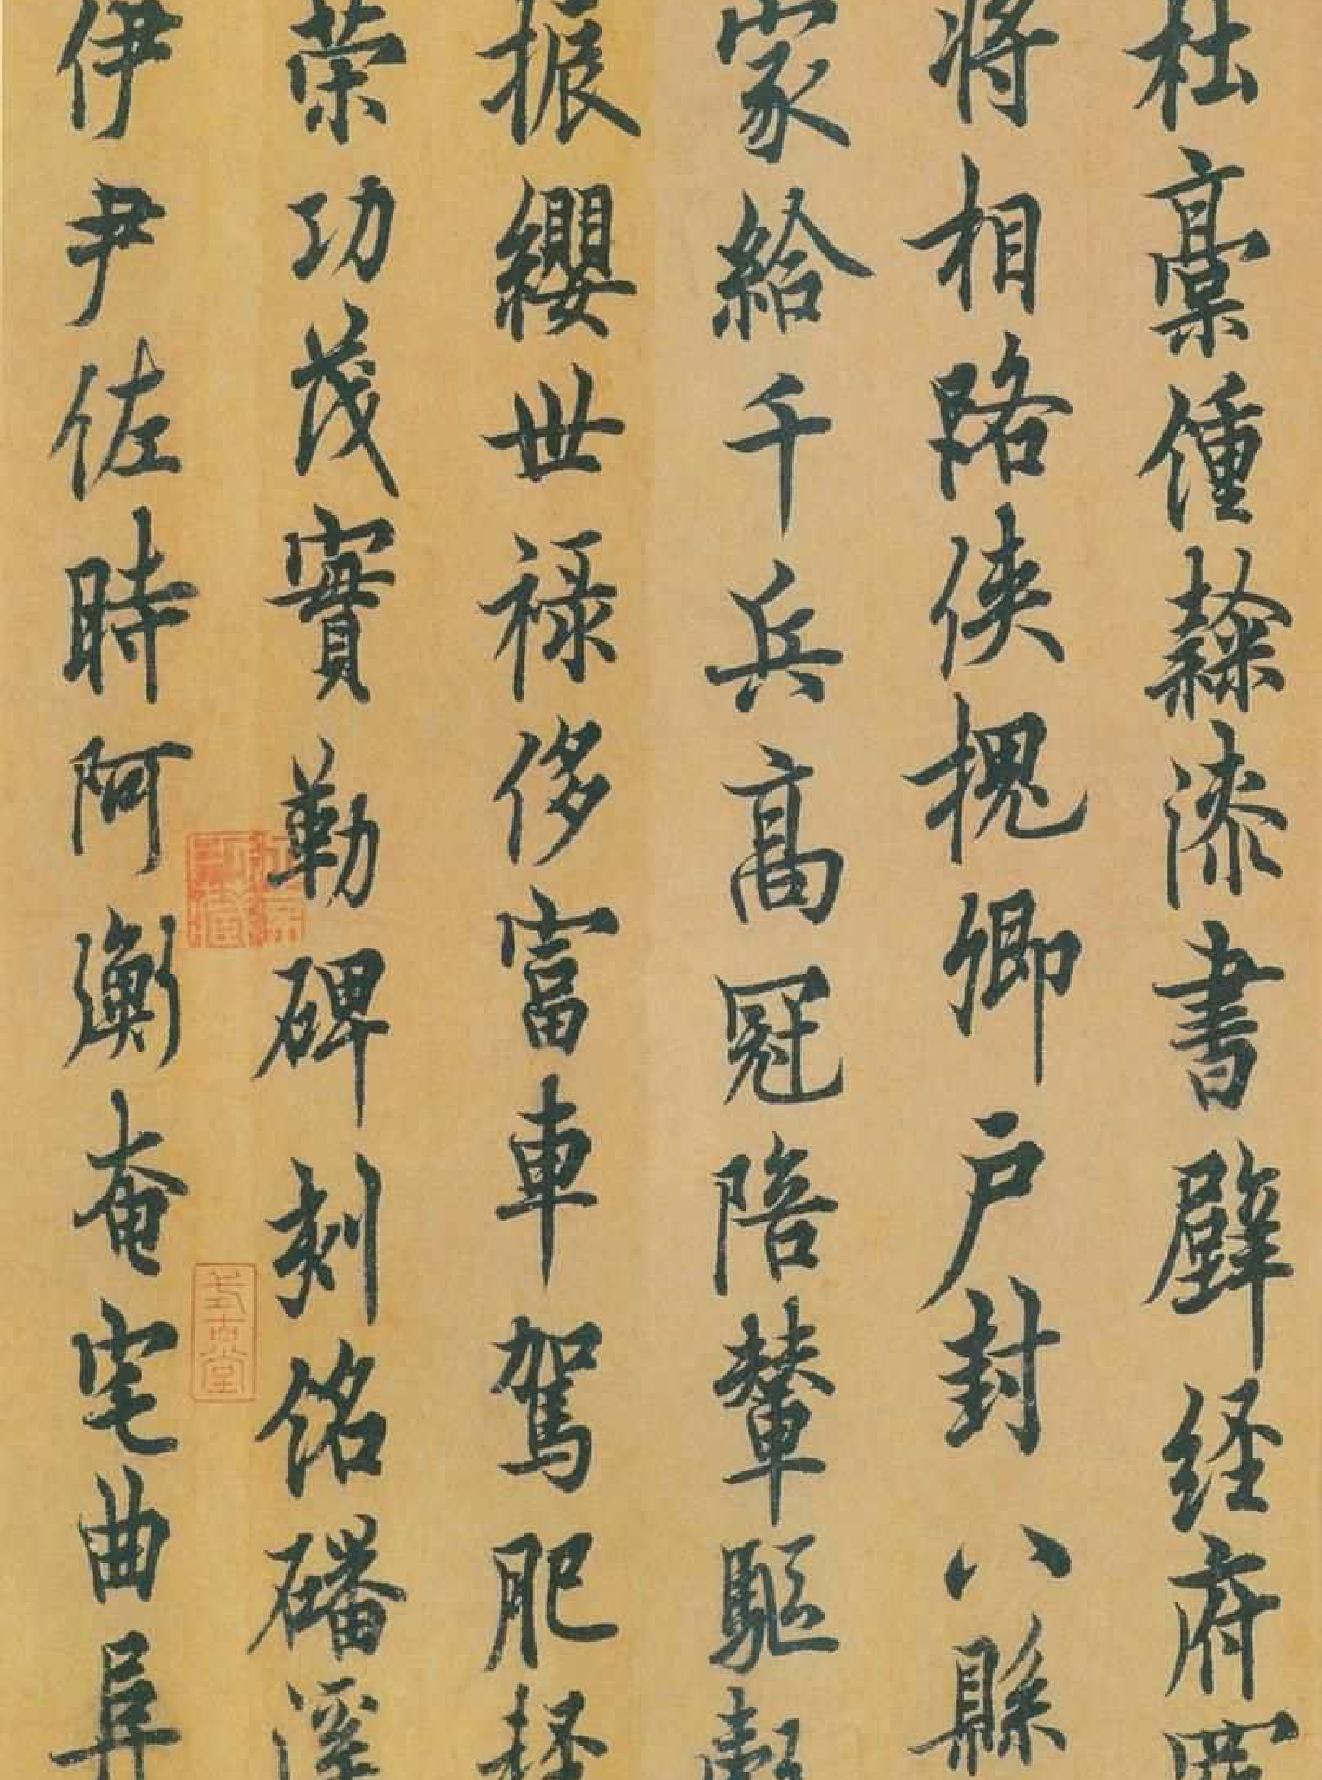 杜稾鍾隸漆書壁經府羅
將相路俠槐卿戶封八縣
家給千兵高冠陪輦驅轂
振纓世祿侈富車駕肥輕
策功茂實勒碑刻銘磻溪
伊尹佐時阿衡奄宅曲阜
式古堂